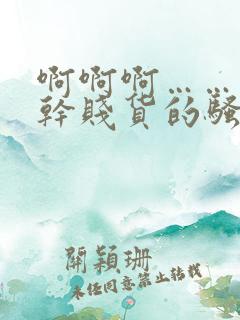 啊啊啊……
幹賤貨的騷
關穎珊
未经同意禁止转载